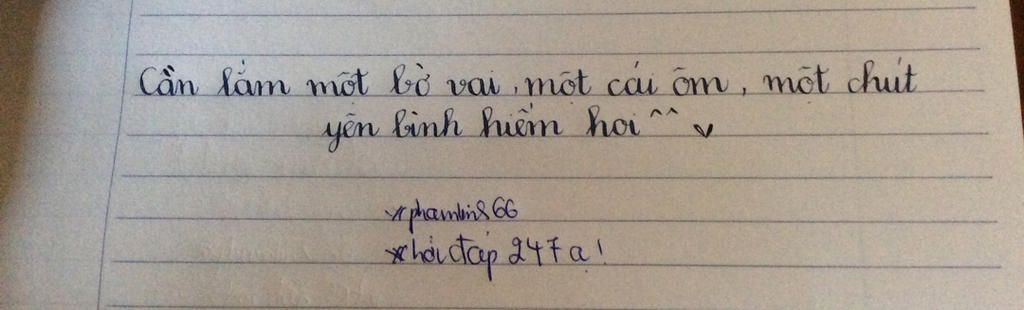 Cần lắm một bờ vai, một cái ôm, một chút
yên bình hiếm hoi ^^ v
* phamlin866
* hỏi đáp 247 ạ!